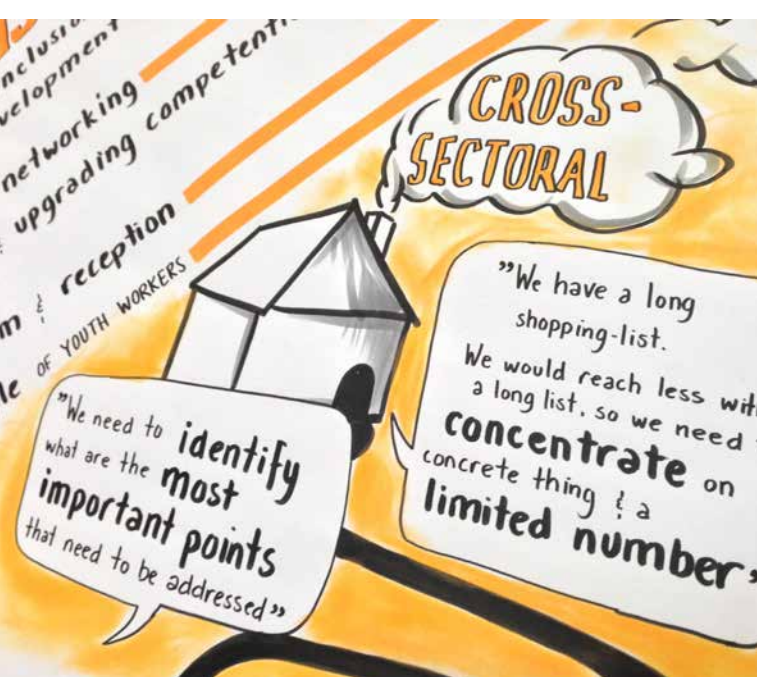 networking
upgrading competenti
& reception
OF YOUTH WORKERS
CROSS-
SECTORAL
"We have a long
shopping-list.
We would reach less with
a long list, so we need
concentrate on
concrete thing & a
limited number"
"We need to identify
what are the most
important points
that need to be addressed"